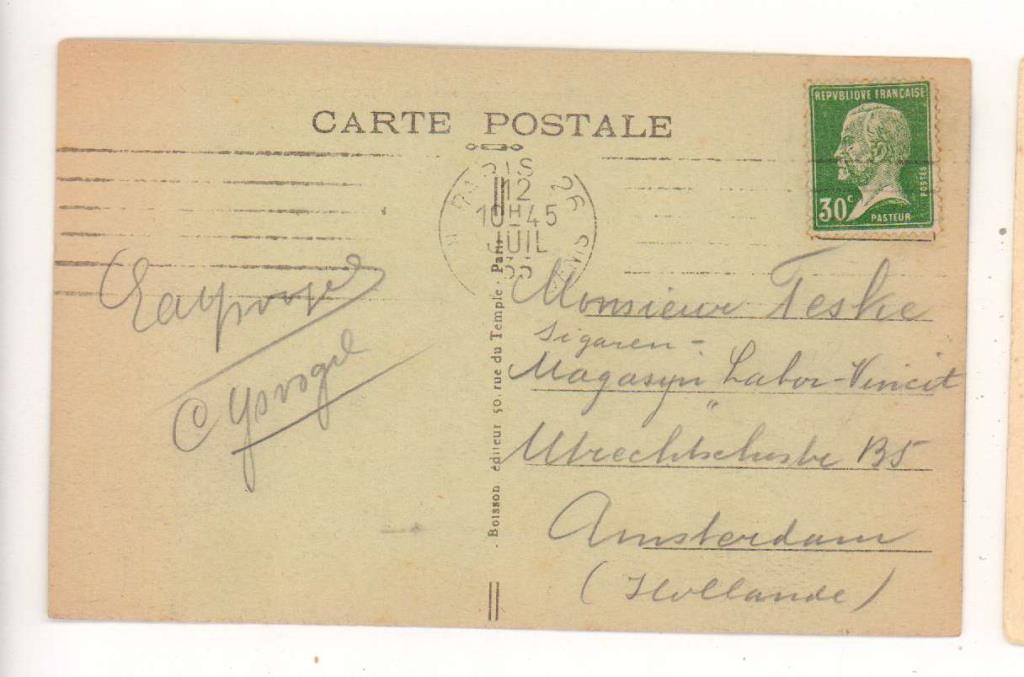 CARTE POSTALE
REPVBLIQUE FRANÇAISE
POSTES
30c
PASTEUR
PARIS
12
10H45
JUIL
Boisson éditeur 50, rue du Temple - Paris
Monsieur Teske
Sigaren -
Magasyn Labor-Vincit
B5
Amsterdam
(Hollande)